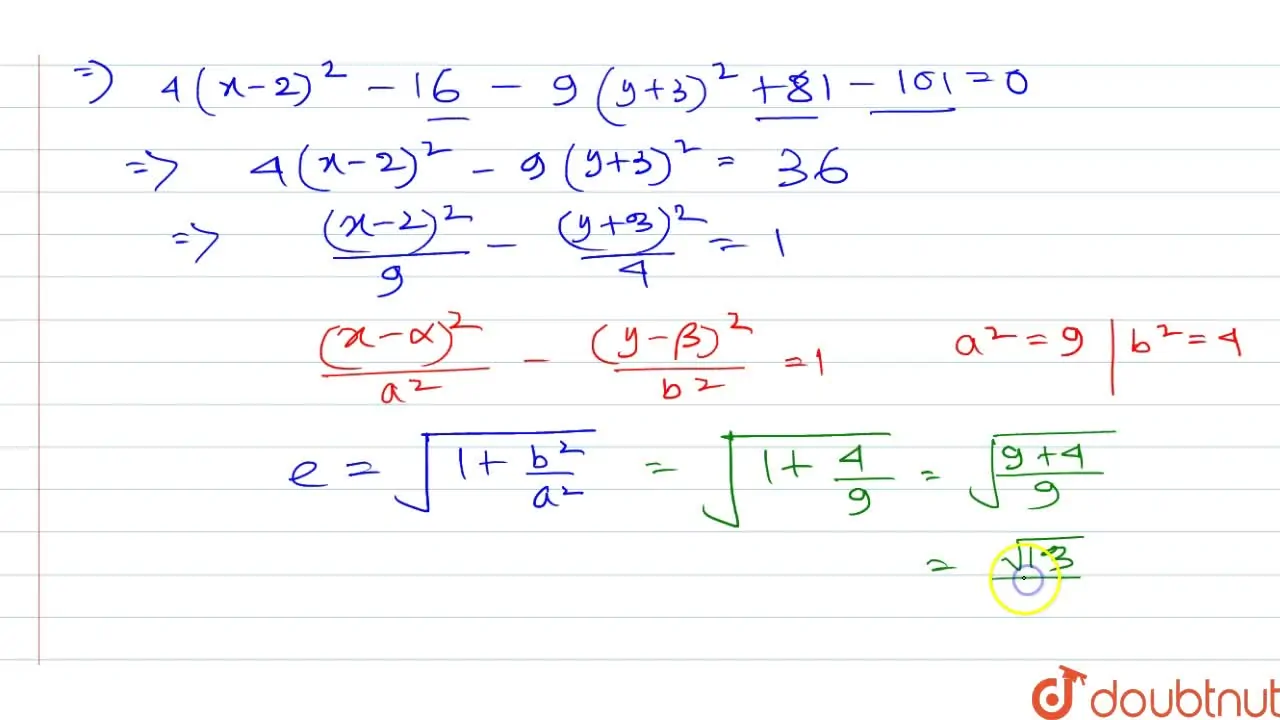 => 4(x-2)² - 16 - 9(y+3)² + 81 - 101 = 0
=> 4(x-2)² - 9(y+3)² = 36
=> (x-2)²/9 - (y+3)²/4 = 1
(x-α)²/a² - (y-β)²/b² = 1 a² = 9 | b² = 4
e = √(1 + b²/a²) = √(1 + 4/9) = √((9+4)/9)
= √13
doubtnut